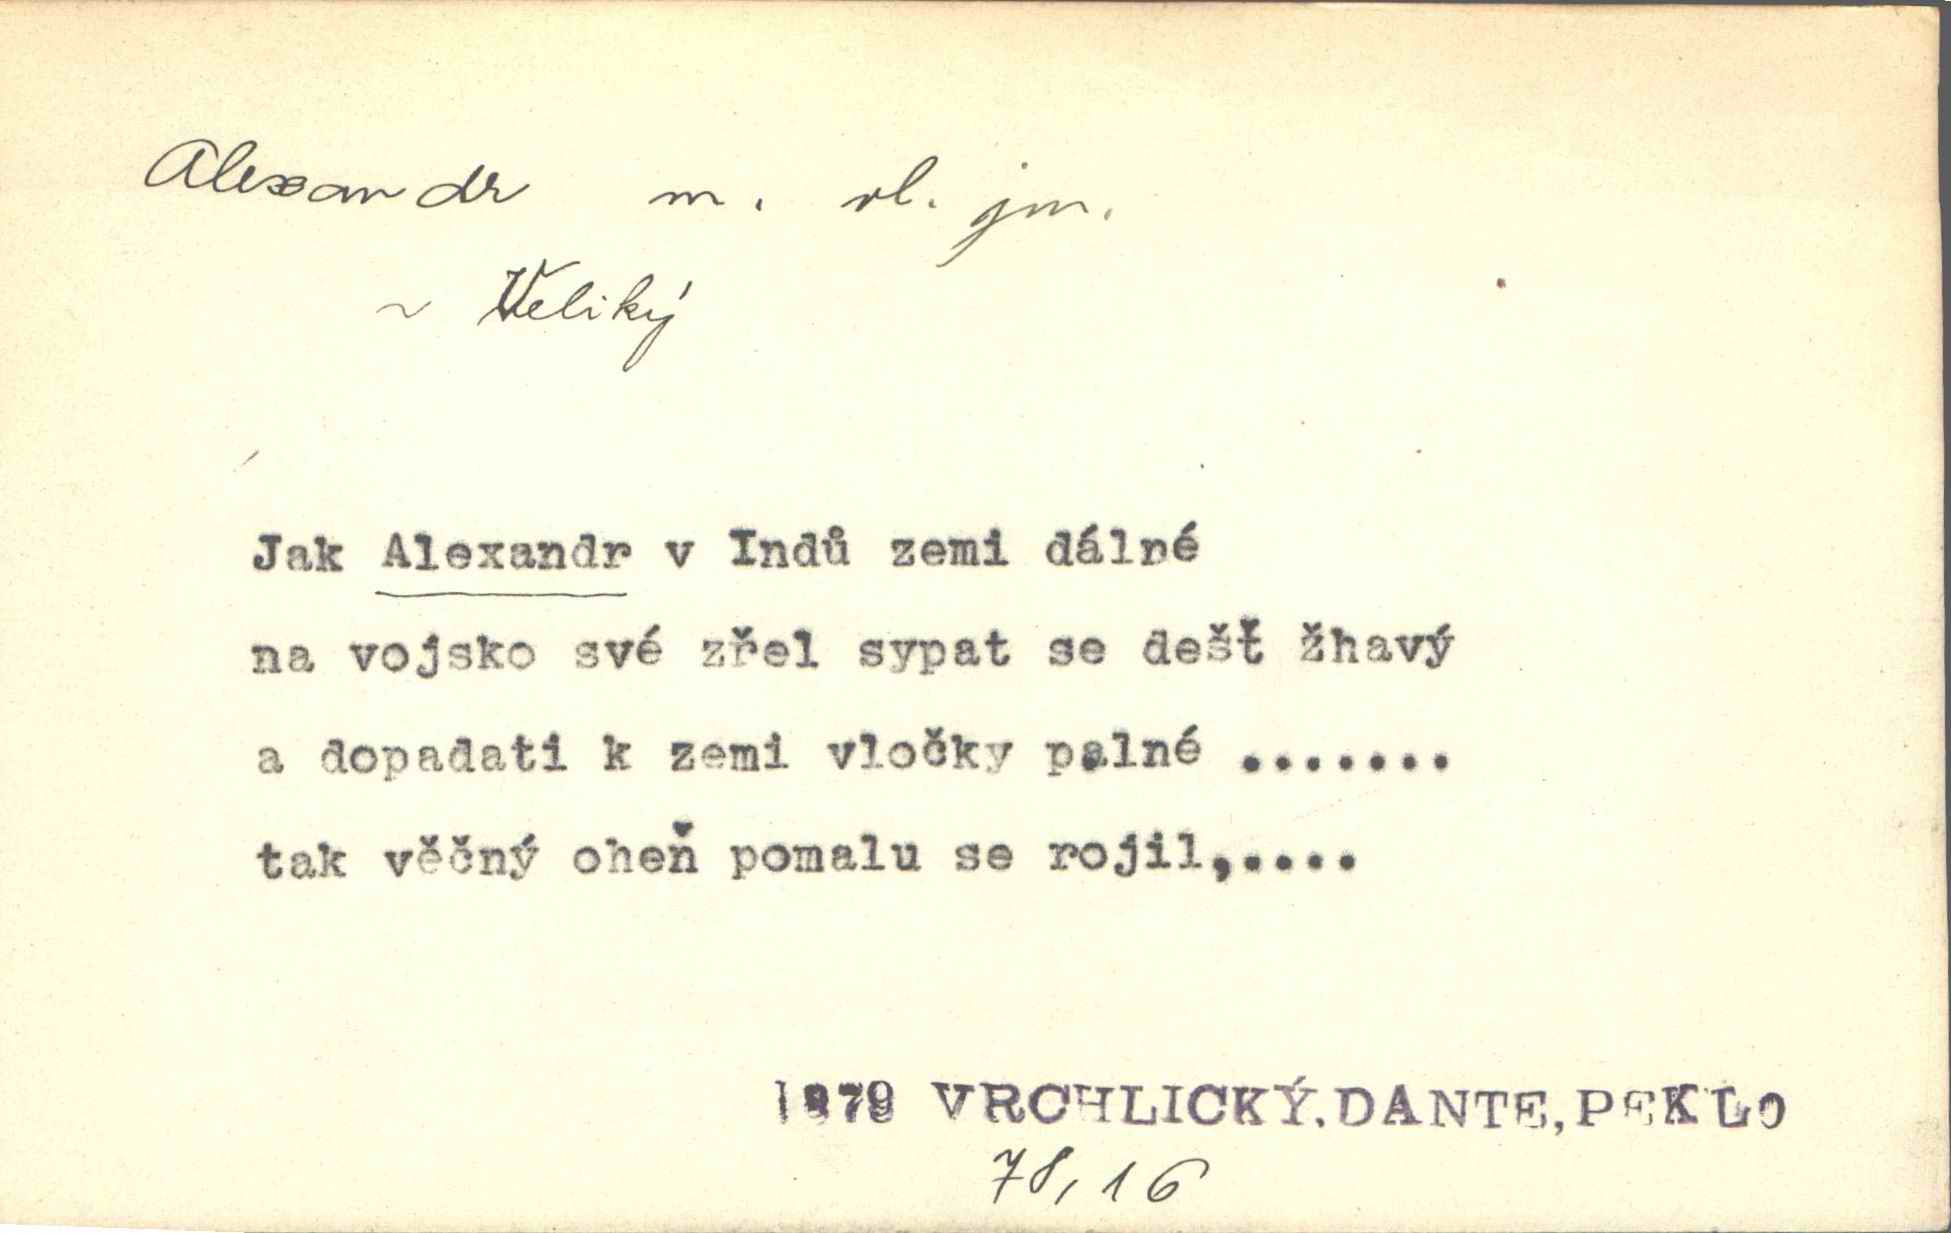 Alexandr m. vl. jm.
~ Veliký
Jak Alexandr v Indů zemi dálné
na vojsko své zřel sypat se dešť žhavý
a dopadati k zemi vločky palné .......
tak věčný oheň pomalu se rojil,....
1879 VRCHLICKÝ.DANTE,PEKLO
78,16